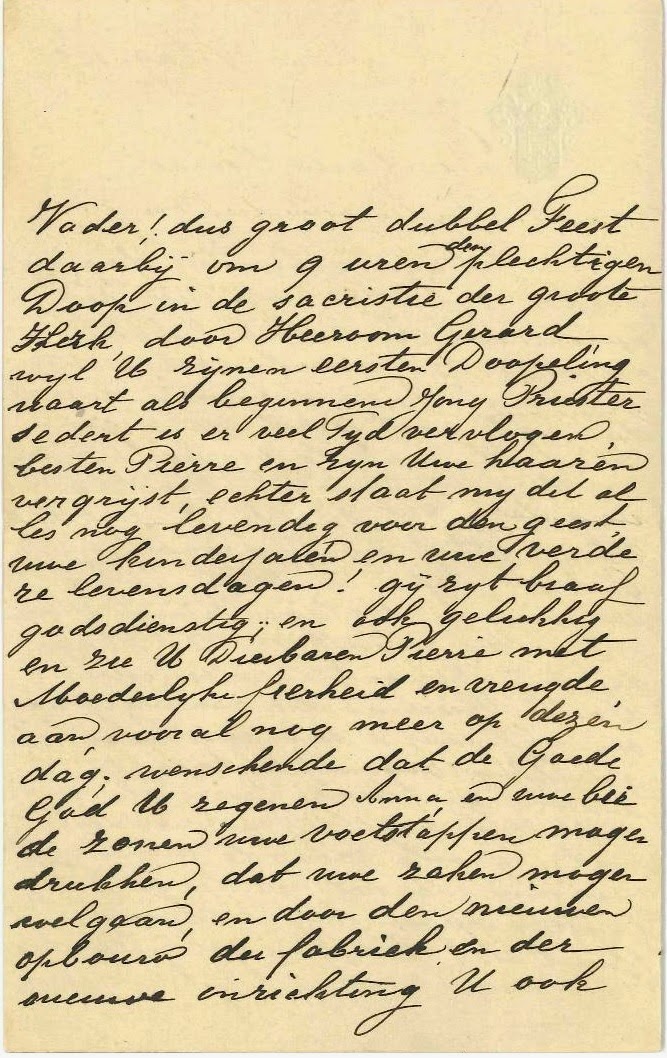 Vader! dus groot dubbel Feest
daarbij om 9 uren den plechtigen
Doop in de sacristie der groote
Kerk, door Heeroom Gerard
wyl U zynen eersten Doopeling
waart als beginnend Jong Priester
sedert is er veel Tyd vervlogen,
besten Pierre en zyn Uwe haaren
vergrijst, echter staat my dit al
les nog levendig voor den geest,
uwe kinderjaren en uwe verde
re levensdagen! gÿ zyt braaf
godsdienstig; en ook gelukkig
en zie U Dierbaren Pierre met
Moederlyke fierheid en vreugde
aan vooral nog meer op dezen
dag. wenschende dat de Goede
God U zegenen Anna en uwe bei
de zonen uwe voetstappen mogen
drukken, dat uwe zaken mogen
welgaan, en door den nieuwen
opbouw der fabriek en der
nieuwe inrichting U ook